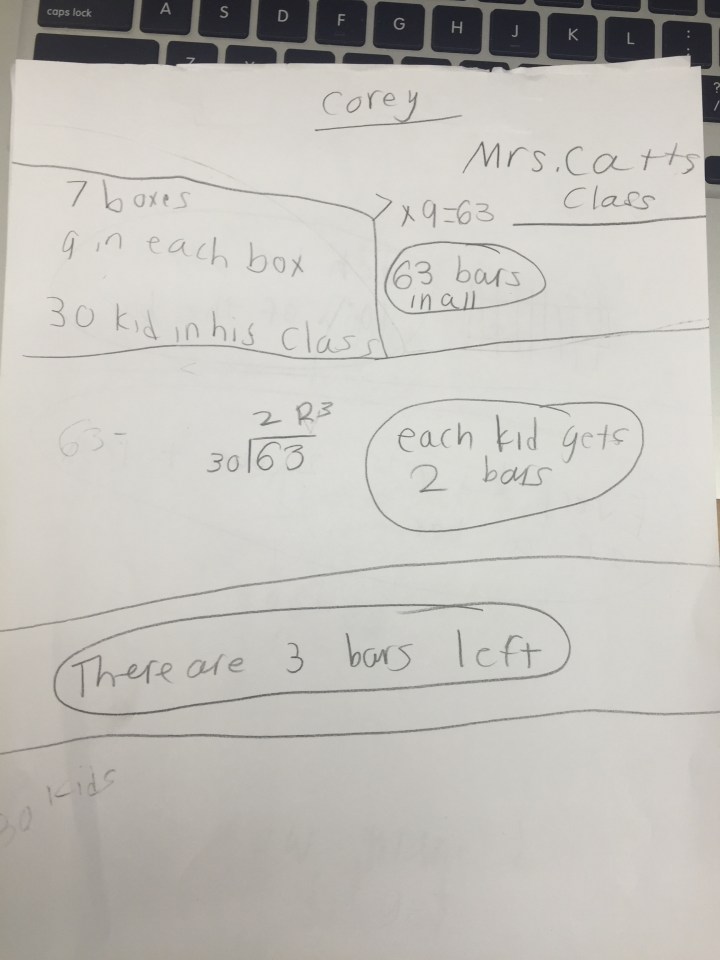 caps lock
A
S
D
F
G
H
J
K
L
:
;
Z
?
/
Corey
Mrs. Catts
Class
7 boxes
9 in each box
30 kid in his class
7 x 9=63
63 bars
in all
63-
2 R3
30 63
each kid gets
2 bars
There are 3 bars left
30 kids